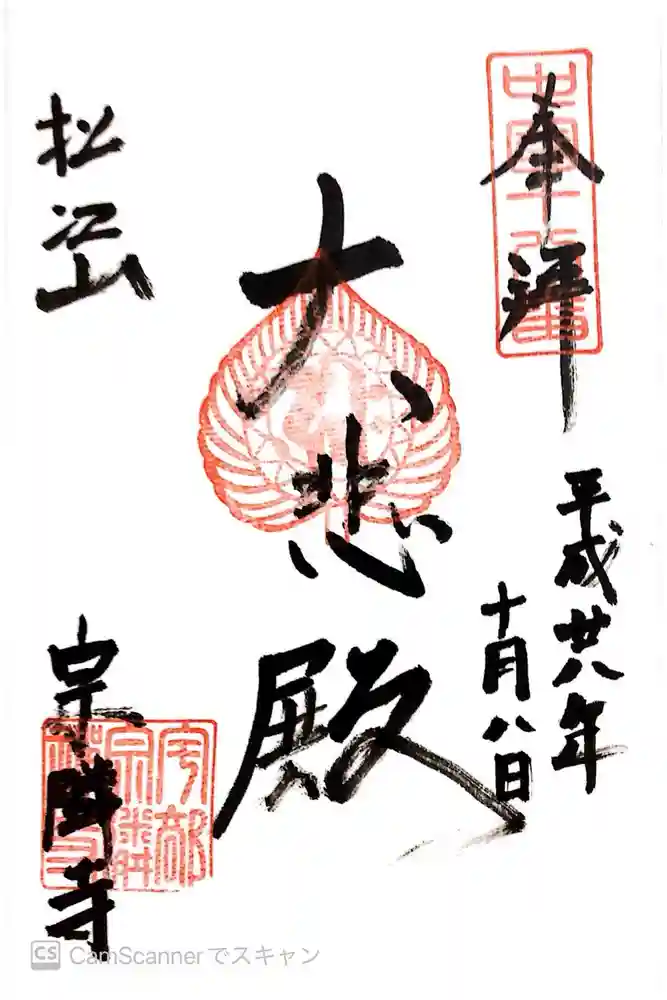 奉拝
平成廿八年
十月八日
大悲殿
松江山
宗隣寺
宇部
CS CamScannerでスキャン